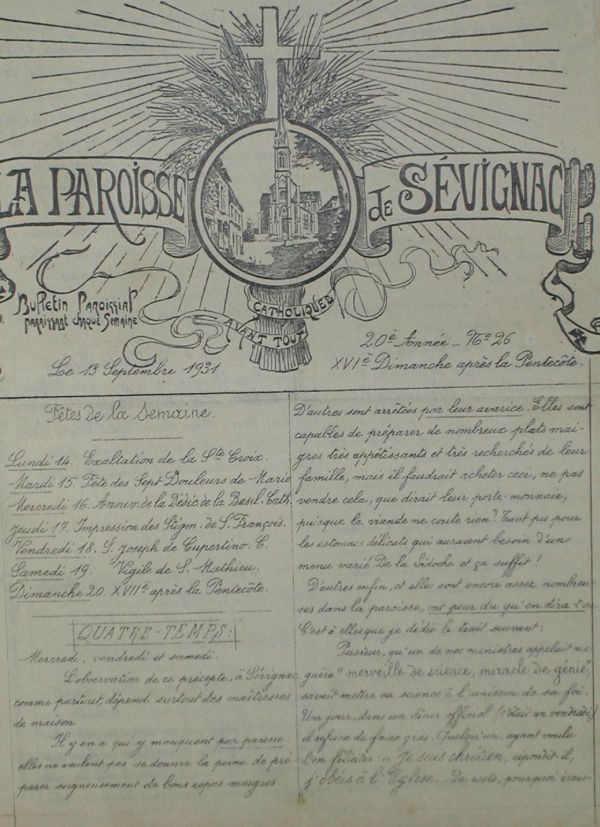 LA PAROISSE de SÉVIGNAC
Bulletin Paroissial
paraissant chaque Semaine
CATHOLIQUES
AVANT TOUT
Le 13 Septembre 1931
20è Année - No 26
XVIè Dimanche après la Pentecôte.
Fêtes de la Semaine.
Lundi 14. Exaltation de la Ste Croix.
Mardi 15. Fête des Sept Douleurs de Marie
Mercredi 16. Anniv. de la Dédic. de la Basil. Cath.
Jeudi 17. Impression des Stigm. de S. François.
Vendredi 18. S. Joseph de Cupertino. C.
Samedi 19. Vigile de S. Mathieu.
Dimanche 20. XVIIè après la Pentecôte.
QUATRE-TEMPS:
Mercredi, vendredi et samedi.
L'observation de ce précepte, à Sévignac
comme partout, dépend surtout des maîtresses
de maison
Il y en a qui y manquent par paresse:
elles ne veulent pas se donner la peine de pré
parer soigneusement de bons repas maigres.
D'autres sont arrêtées par leur avarice. Elles sont
capables de préparer de nombreux plats mai-
gres très appétissants et très recherchés de leur
famille, mais il faudrait acheter ceci, ne pas
vendre cela, que dirait leur porte-monnaie,
puisque la viande ne coûte rien? Tant pis pour
les estomacs délicats qui auraient besoin d'un
menu varié. De la bidoche et ça suffit!
D'autres enfin, et elles sont encore assez nombreu-
ses dans la paroisse, ont peur du qu'en dira-t-on
C'est à elles que je dédie le trait suivant:
Pasteur, qu'un de nos ministres appelait na
guère "merveille de science, miracle de génie",
savait mettre sa science à l'unisson de sa foi.
Un jour, dans un dîner officiel (c'était un vendredi)
il refuse de faire gras. Quelqu'un, ayant voulu
l'en féliciter: "Je suis chrétien, répondit il,
j'obéis à l'Église... De reste, pourquoi